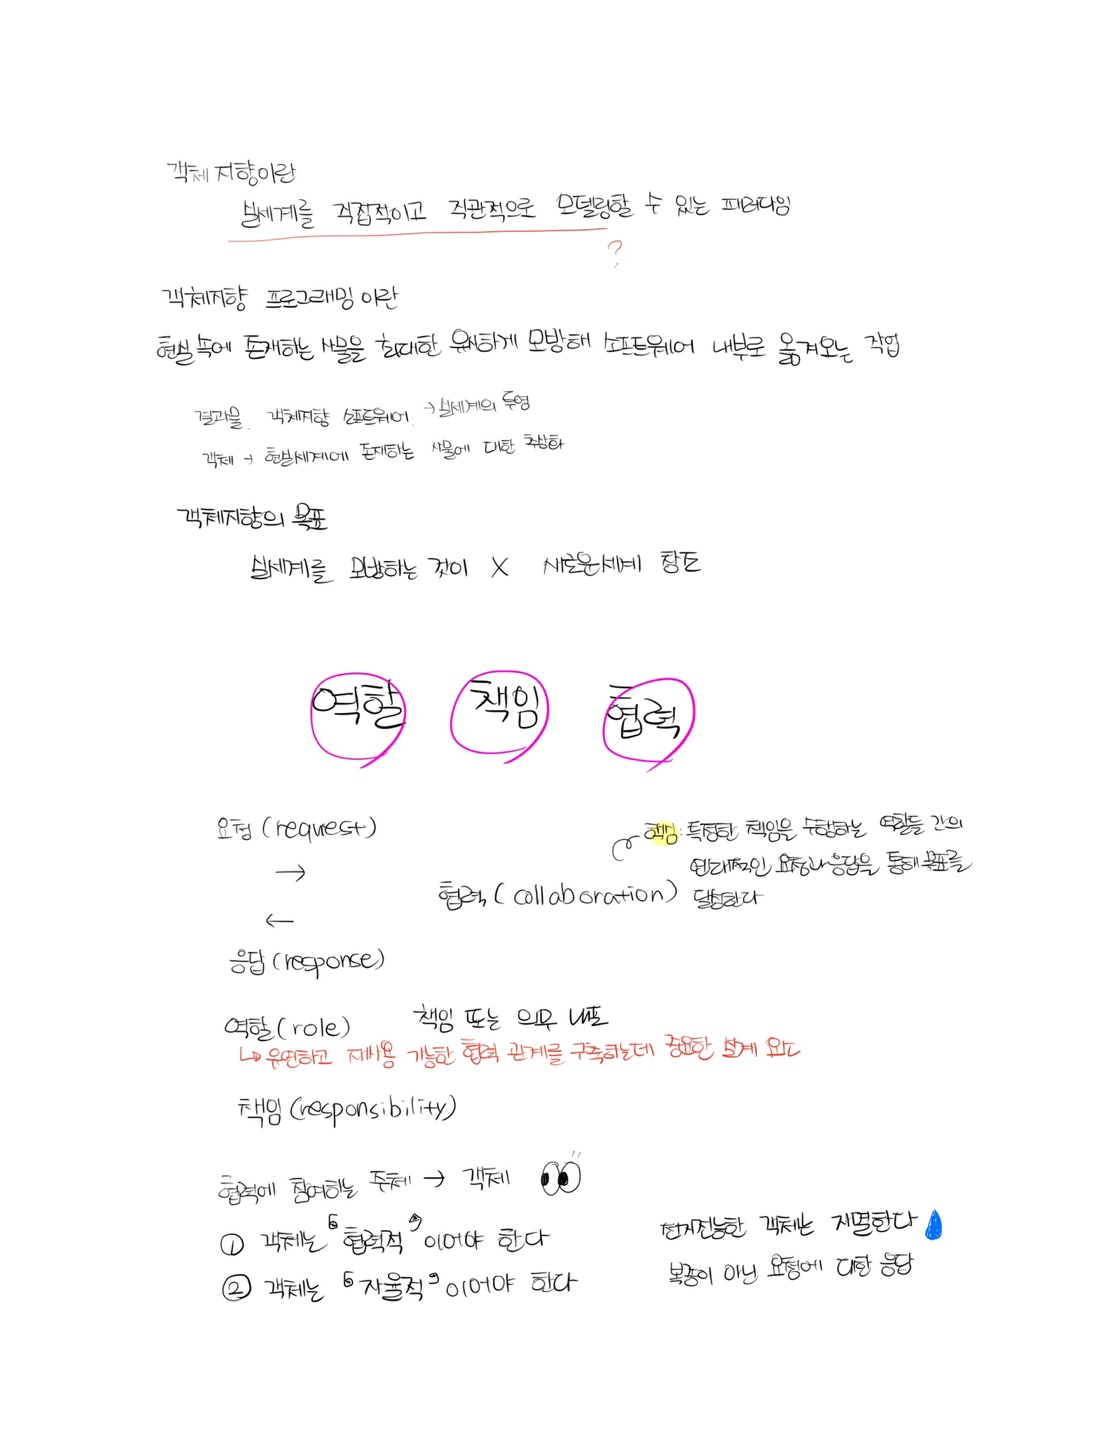 객체지향이란
실세계를 직접적이고 직관적으로 모델링할 수 있는 패러다임
?
객체지향 프로그래밍이란
현실 속에 존재하는 사물을 최대한 유사하게 모방해 소프트웨어 내부로 옮겨오는 작업
결과물 객체지향 소프트웨어 → 실세계의 투영
객체 → 현실세계에 존재하는 사물에 대한 추상화
객체지향의 목표
실세계를 모방하는 것이 X 새로운세계 창조
역할 책임 협력
요청(request)
→
←
응답(response)
협력(collaboration)
핵심: 특정한 책임을 수행하는 역할들 간의
연대적인 요청과 응답을 통해 목표를
달성한다
역할(role) 책임 또는 의무 내포
↳ 유연하고 재사용 가능한 협력 관계를 구축하는데 중요한 설계 요소
책임(responsibility)
협력에 참여하는 주체 → 객체
① 객체는 '협력적' 이어야 한다
② 객체는 '자율적' 이어야 한다
전지전능한 객체는 자멸한다
복종이 아닌 요청에 대한 응답